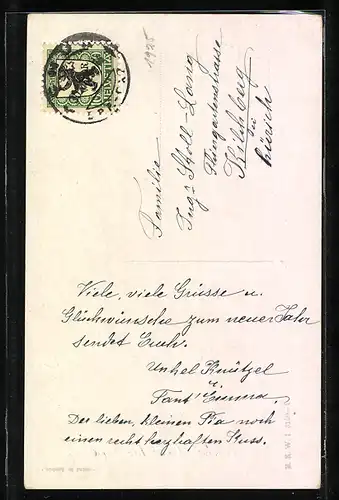 1925
Familie
Ing. Stoll-Lang
Kilchberg
bei
Zürich
Viele, viele Grüsse u.
Glückwünsche zum neuen Jahr
sendet Euch.
Unkel Knützel
u.
Tant' Emma.
Der lieben, kleinen Pia noch
einen recht herzhaften Kuss.